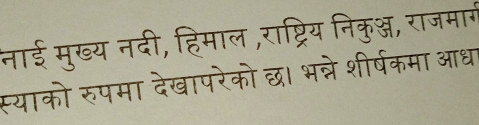 नाई मुख्य नदी, हिमाल ,राष्ट्रिय निकुञ्ज, राजमार्ग
स्याको रुपमा देखापरेको छ। भन्ने शीर्षकमा आधा